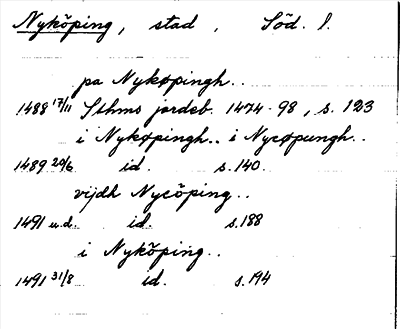 Nyköping, stad, Söd. l.
pa Nykøpingh..
1488 17/11 Sthms jordeb. 1474-98, s. 123
i Nykøpingh.. i Nycøpungh..
1489 20/6 id. s. 140.
vijdh Nycöping..
1491 u.d. id. s. 188
i Nyköping..
1491 31/8 id. s. 194